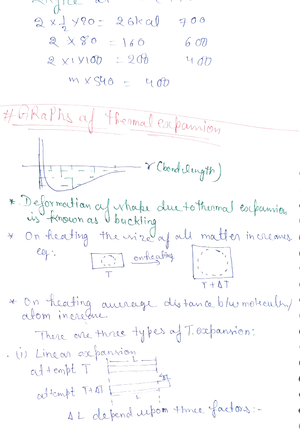 2 × 1/2 × 20 = 20 kcal 700
2 × 80 = 160 600
2 × 1 × 100 = 200 400
m × 540 = 400
# Graphs of thermal expansion
r (bond length)
* Deformation of shape due to thermal expansion
is known as buckling
* On heating the size of all matter increases
eg:- on heating
T T + ΔT
* On heating average distance b/w molecules/
atom increase
There are three types of T. expansion:
(i) Linear expansion
L
at tempt T
at tempt T+ΔT
L ΔL
Δ L depend upon three factors:-